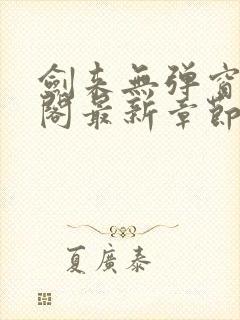 劍來無彈窗
閣最新章節
夏廣泰